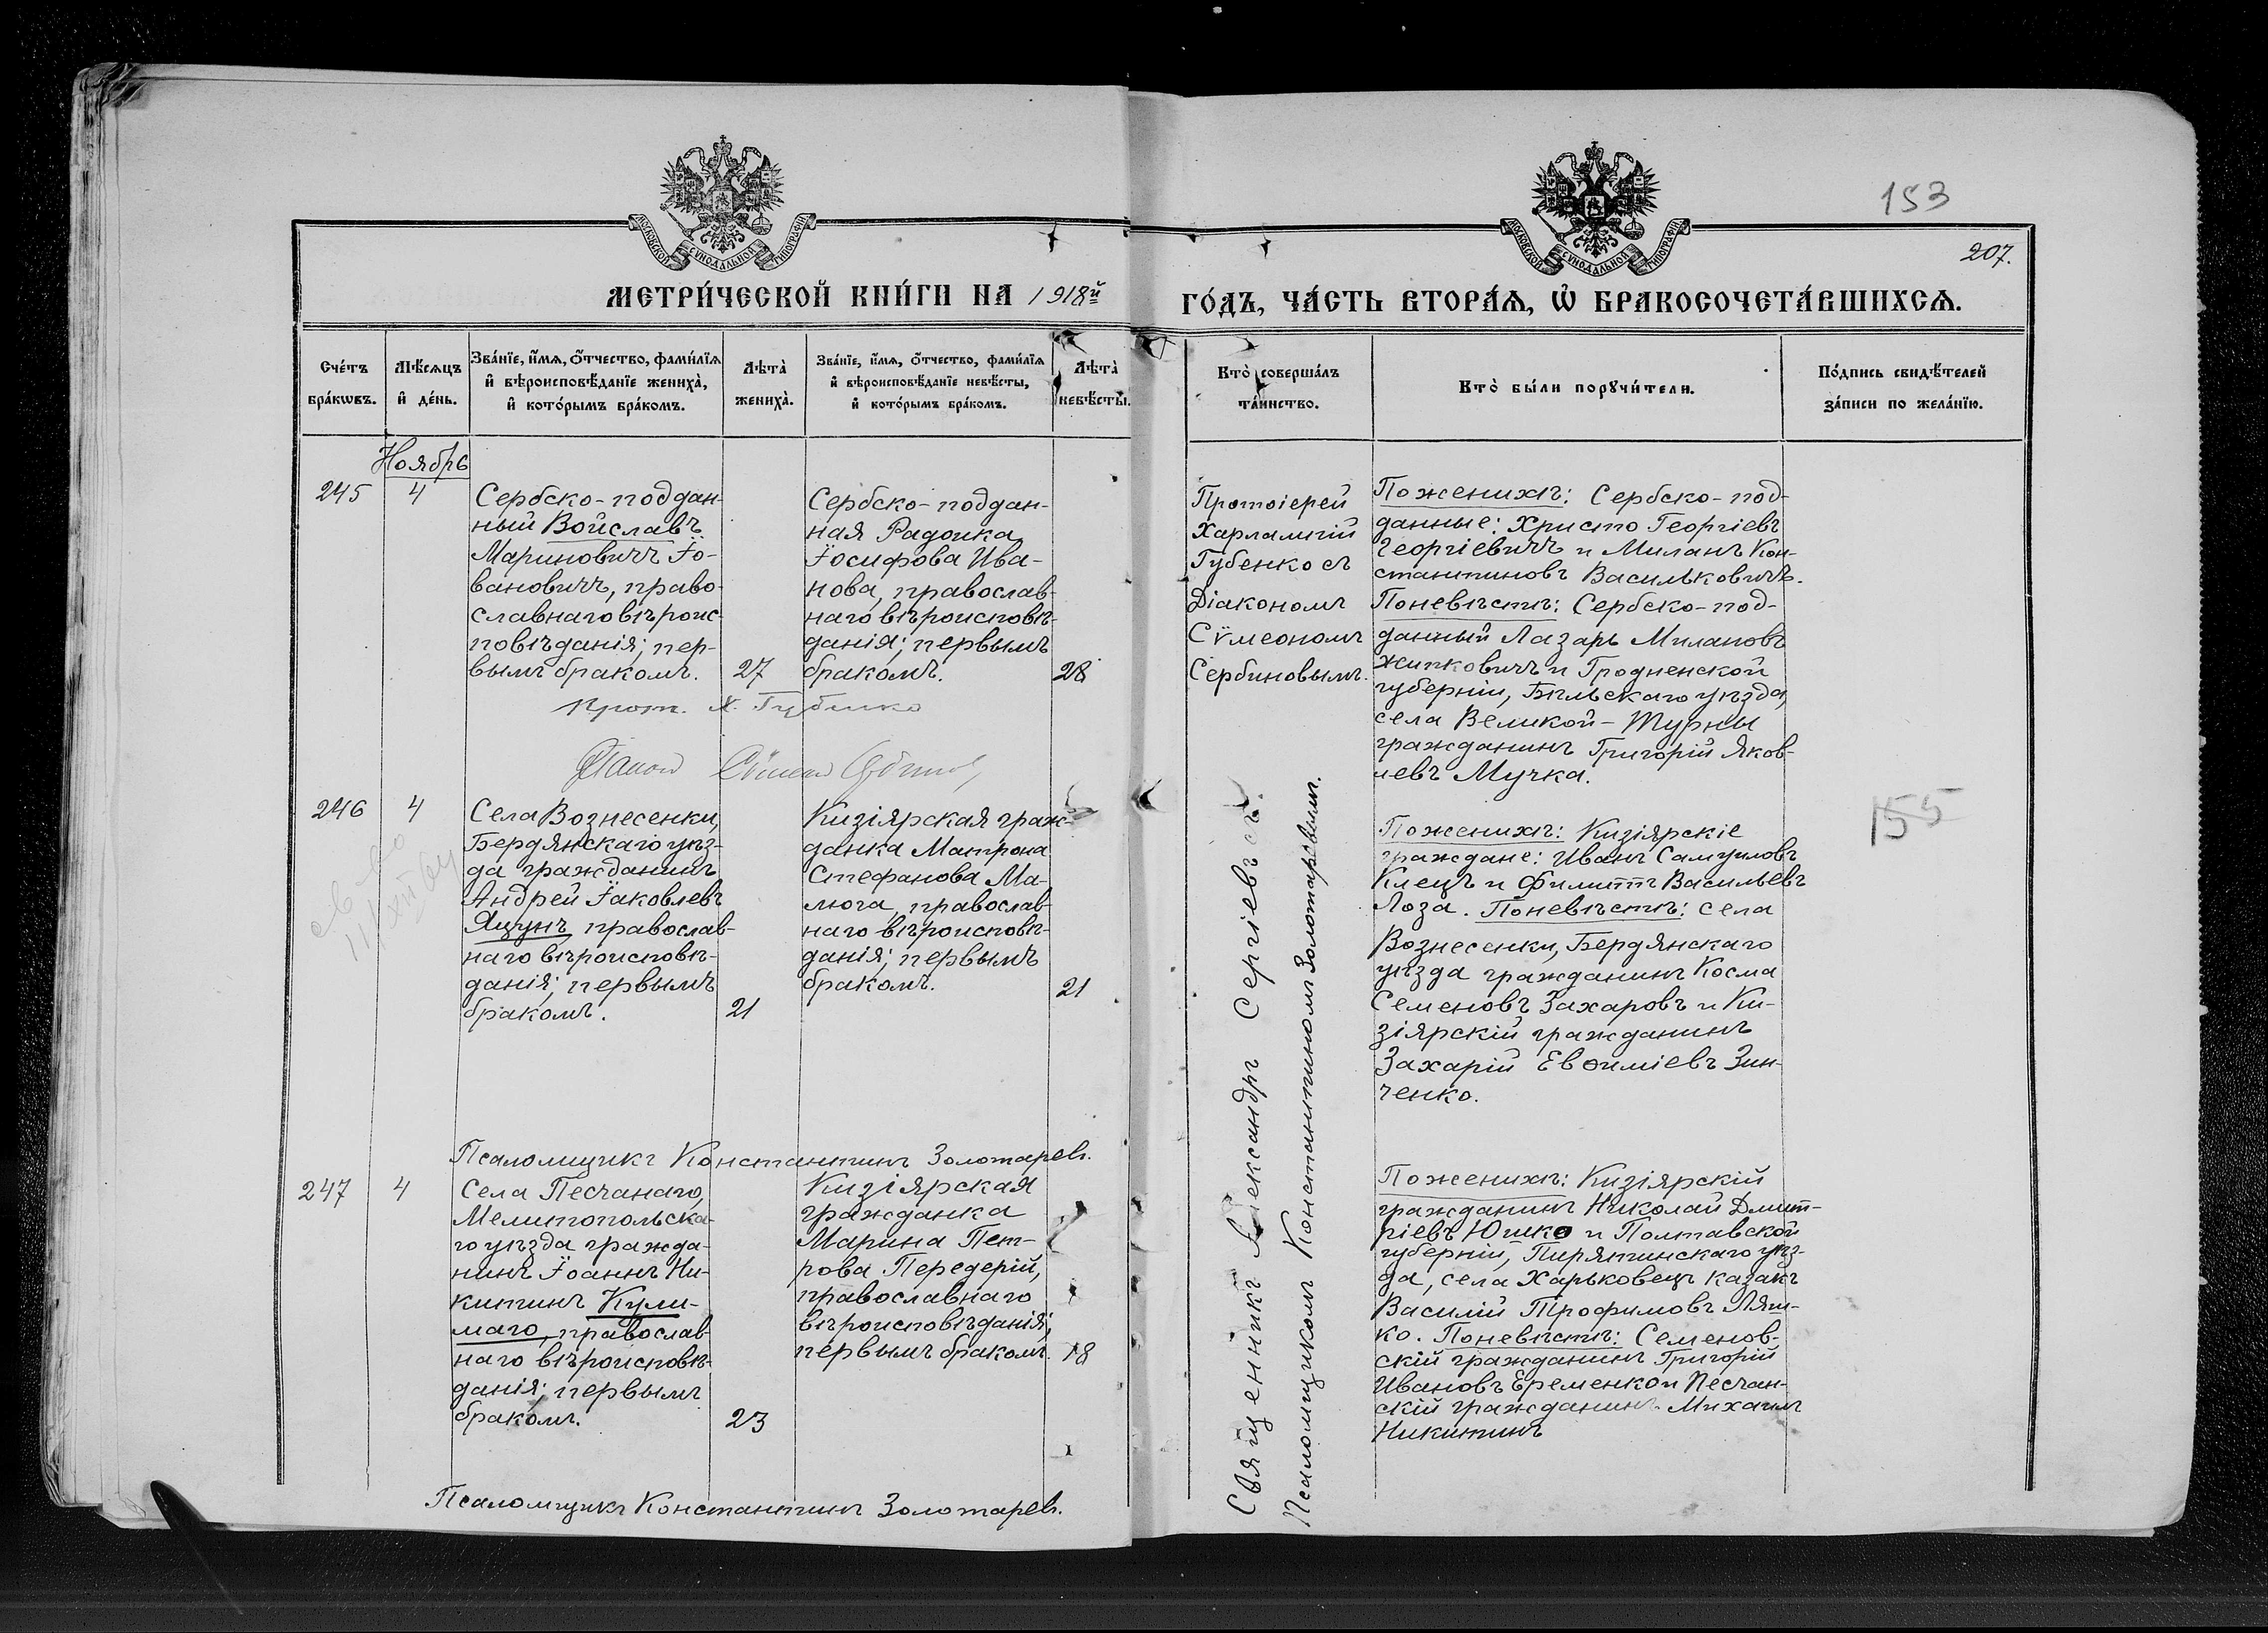 153
207.
МОСКОВСКОЙ СѴНОДАЛЬНОЙ ТИПОГРАФІИ
МОСКОВСКОЙ СѴНОДАЛЬНОЙ ТИПОГРАФІИ
МЕТРИ́ЧЕСКОЙ КНИ́ГИ НА 1918й
ГО́ДЪ, ЧА́СТЬ ВТОРА́Ѧ, Ѡ҆ БРАКОСОЧЕТА́ВШИХСѦ.
Сче́тъ бра́кѡвъ.
Мѣ́сяцъ и҆ де́нь.
Зва́нїе, и҆́мѧ, ѻ҆́тчество, фами́лїѧ
и҆ вѣроисповѣ́данїе женихѐ,
и҆ кото́рымъ бра́комъ.
Лѣта̀ жениха̀.
Зва́нїе, и҆́мѧ, ѻ҆́тчество, фами́лїѧ
и҆ вѣроисповѣ́данїе невѣ́сты,
и҆ кото́рымъ бра́комъ.
Лѣта̀ невѣ́сты.
Кто̀ соверша́лъ
та́инство.
Кто̀ бы́ли порꙋчи́тели.
По́дпись свидѣ́телей
за́писи по жела́нїю.
Ноябрь
245
4
Сербско-поддан-
ный Войславъ
Мариновичъ Іо-
вановичъ, право-
славнаго вѣроис-
повѣданія; пер-
вымъ бракомъ.
27
Сербско-поддан-
ная Радоика
Іосифова Ива-
нова, православ-
наго вѣроисповѣ-
данія; первымъ
бракомъ.
28
Протоіерей
Харлампій
Губенко съ
Діакономъ
Сѵмеономъ
Сербиновымъ.
По женихѣ: Сербско-под-
данные: Христо Георгіевъ
Георгіевичъ и Миланъ Кон-
стантиновъ Васильковичъ.
По невѣстѣ: Сербско-под-
данный Лазарь Милановъ
Живковичъ и Гродненской
губерніи, Бѣльскаго уѣзда,
села Великой-Турны
гражданинъ Григорій Яков-
левъ Мучка.
Прот. Х. Губенко
246
4
Села Вознесенки,
Бердянскаго уѣз-
да гражданинъ
Андрей Іаковлевъ
Яцунъ, православ-
наго вѣроисповѣ-
данія; первымъ
бракомъ.
21
Кизіярская граж-
данка Матрона
Стефанова Ма-
люга, православ-
наго вѣроисповѣ-
данія; первымъ
бракомъ.
21
Священникъ Александръ Сергіевъ съ
Псаломщикомъ Константиномъ Золотаревымъ.
По женихѣ: Кизіярскіе
граждане: Иванъ Самуиловъ
Клецъ и Филиппъ Васильевъ
Лоза. По невѣстѣ: села
Вознесенки, Бердянскаго
уѣзда гражданинъ Косма
Семеновъ Захаровъ и Ки-
зіярскій гражданинъ
Захарій Евѳиміевъ Зин-
ченко.
155
Псаломщикъ Константинъ Золотаревъ.
247
4
Села Песчанаго,
Мелитопольска-
го уѣзда гражда-
нинъ Іоаннъ Ни-
китинъ Кули-
маго, православ-
наго вѣроисповѣ-
данія; первымъ
бракомъ.
23
Кизіярская
гражданка
Марина Пет-
рова Передерій,
православнаго
вѣроисповѣданія;
первымъ бракомъ.
18
По женихѣ: Кизіярскій
гражданинъ Николай Дмит-
ріевъ Юшко и Полтавской
губерніи, Пирятинскаго уѣз-
да, села Харьковецъ казакъ
Василій Трофимовъ Ляш-
ко. По невѣстѣ: Семенов-
скій гражданинъ Григорій
Ивановъ Еременко и Песчан-
скій гражданинъ Михаилъ
Никитинъ
Псаломщикъ Константинъ Золотаревъ.